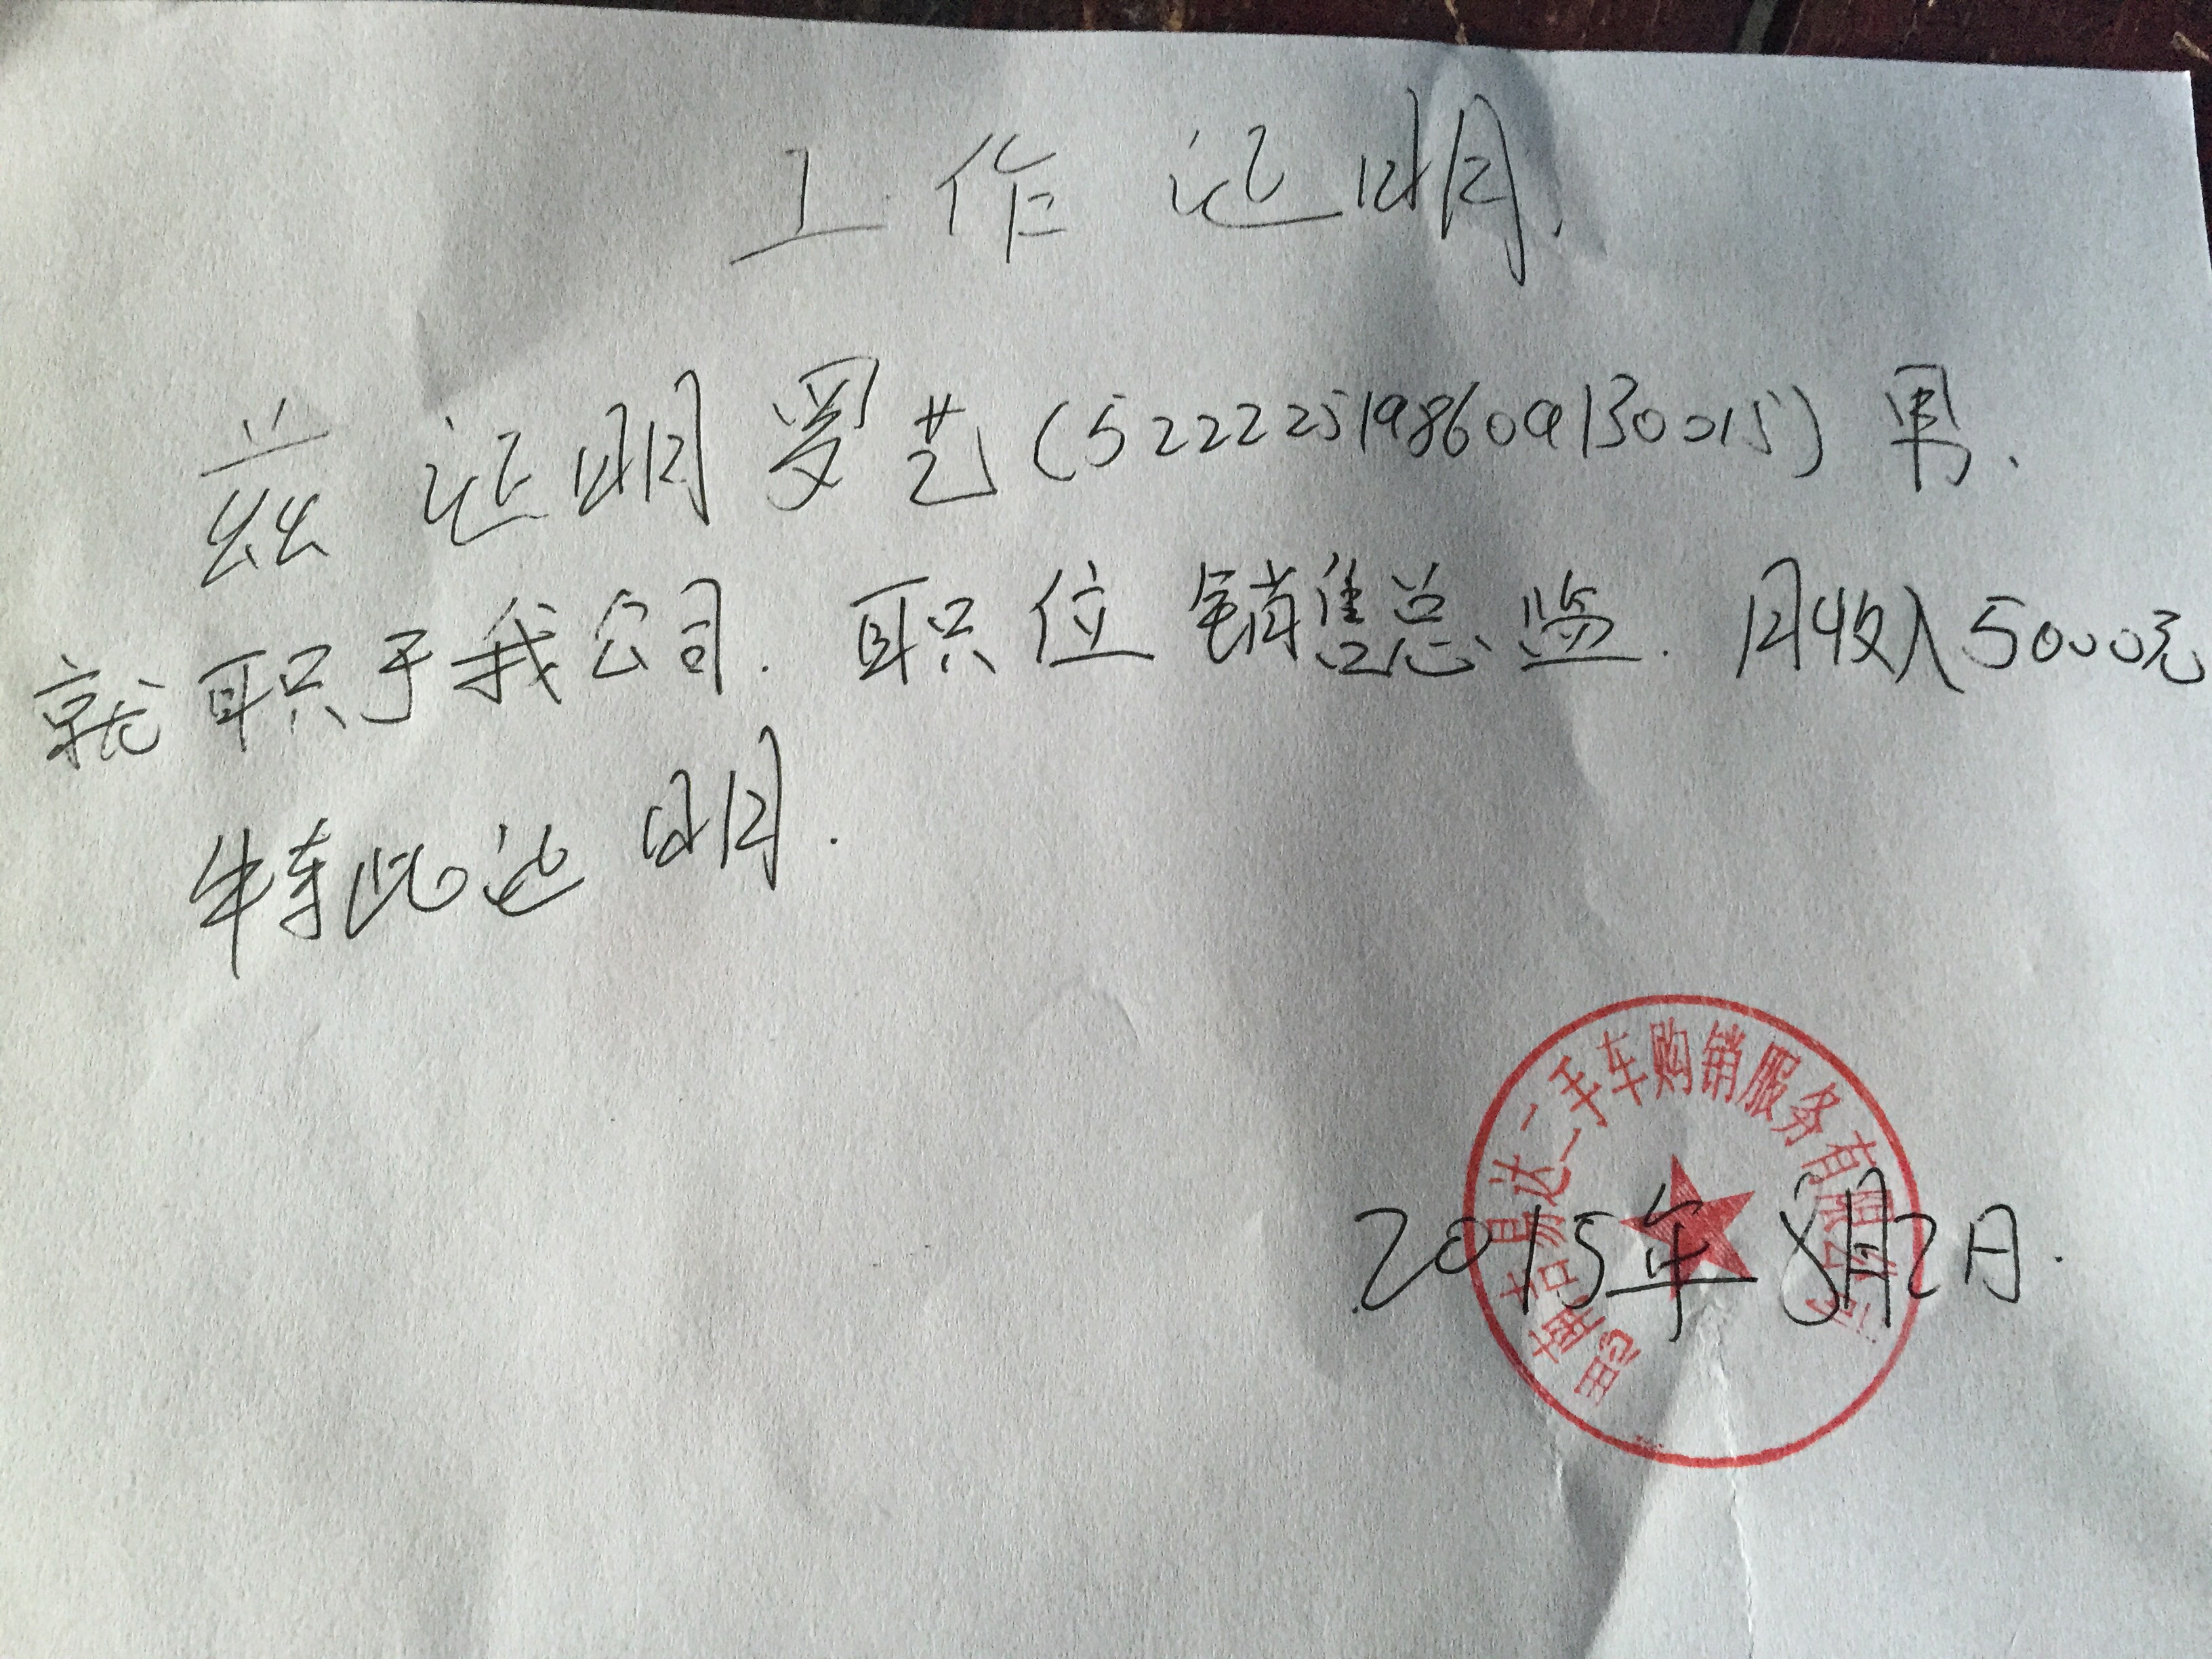 工作证明.
兹证明罗艺(522225198609130015)男.
就职于我公司.职位销售总监.月收入5000元
特此证明.
思南吉易达二手车购销服务有限公司
2015年8月2日.